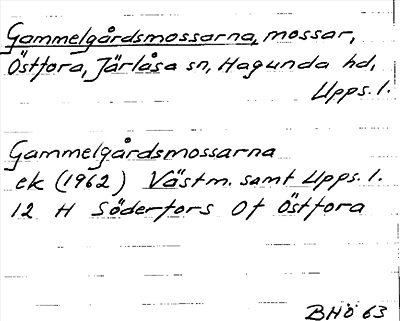 Gammelgårdsmossarna, mossar,
Östfora, Järlåsa sn, Hagunda hd,
Upps. l.
Gammelgårdsmossarna
ek (1962) Västm. samt Upps. l.
12 H Söderfors Of Östfora
BHÖ 63